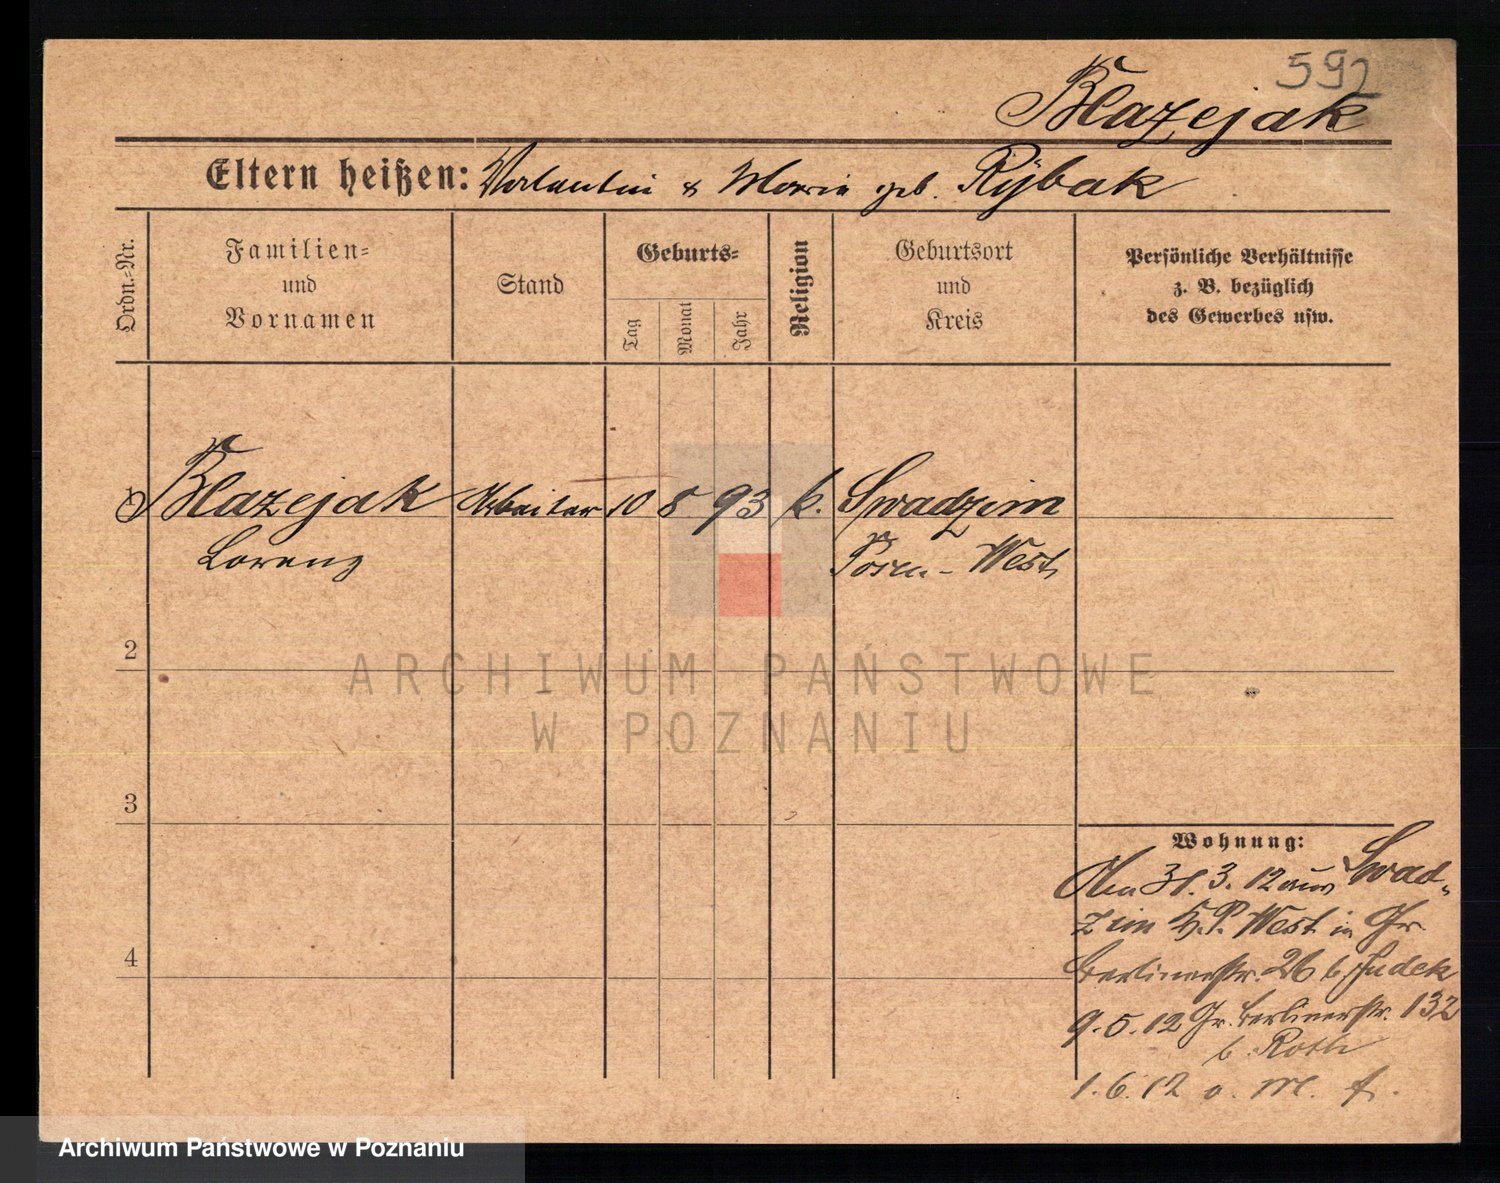 592
Blazejak
Eltern heißen: Valentin & Maria geb. Rÿbak
Ordn.-Nr.
Familien-
und
Vornamen
Stand
Geburts-
Tag
Monat
Jahr
Religion
Geburtsort
und
Kreis
Persönliche Verhältnisse
z. B. bezüglich
des Gewerbes usw.
Blazejak Arbeiter 10 8 93 k. Swadzim
Lorenz Posen-West
2
3
4
Wohnung:
Am 31.3.12 aus Swad-
zim K.P. West in Gr.
Berlinerstr. 26 b. Judek
9.5.12 Gr. Berlinerstr. 132
b. Roth
1.6.12 o. M. f.
ARCHIWUM PAŃSTWOWE
W POZNANIU
Archiwum Państwowe w Poznaniu